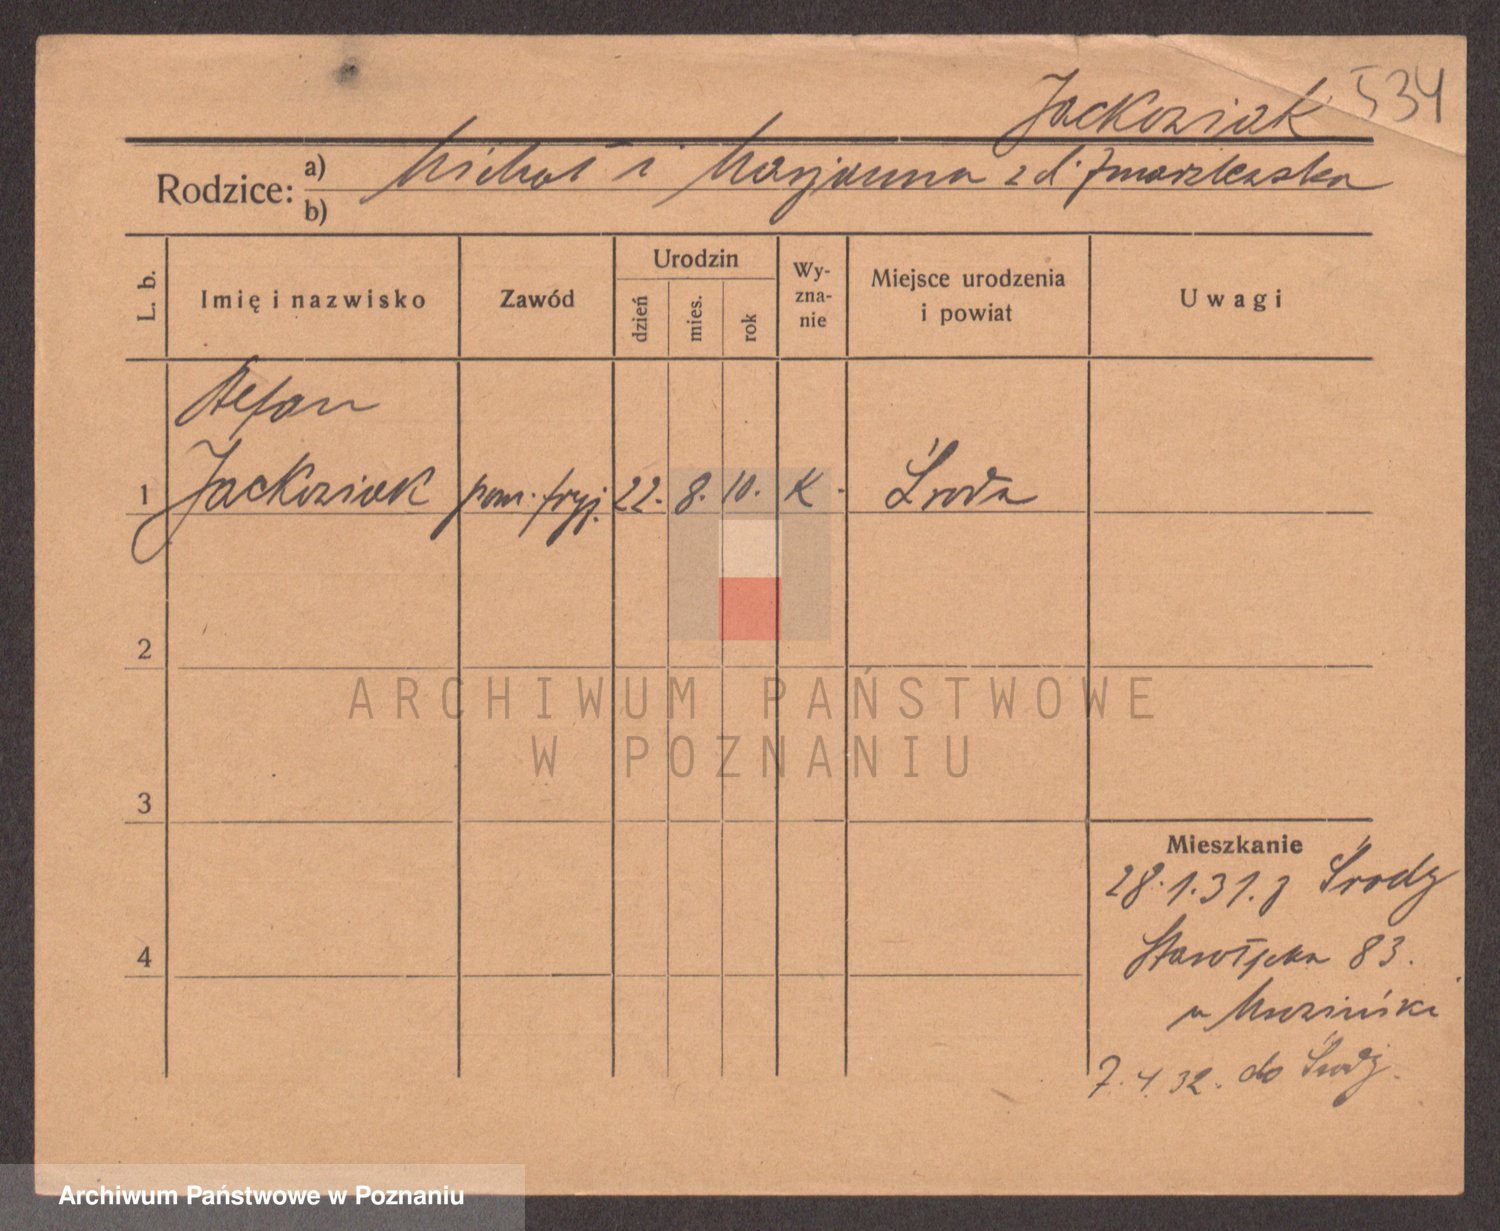 Jackowiak 534
Rodzice: a) Michał i Marjanna z d.
b)
L. b.
Imię i nazwisko
Zawód
Urodzin
dzień
mies.
rok
Wy-
zna-
nie
Miejsce urodzenia
i powiat
Uwagi
Stefan
1 Jackowiak pom. fryj. 22. 8. 10. K. Środa
2
3
4
ARCHIWUM PAŃSTWOWE
W POZNANIU
Mieszkanie
28.1.31. z Środy
Starołęcka 83.
u
7.4.32. do Środy.
Archiwum Państwowe w Poznaniu